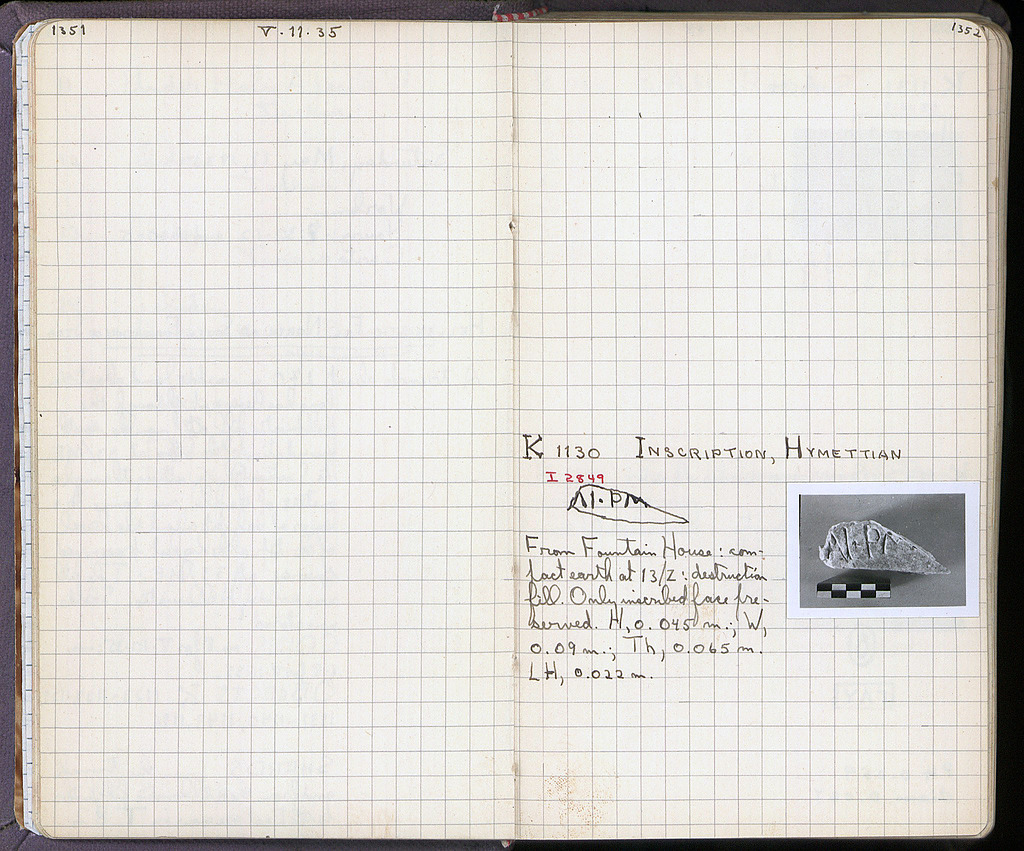 1351
V. 11. 35
1352
K 1130 INSCRIPTION, HYMETTIAN
I 2849
ΛΙ·ΡΜ
From Fountain House: com-
pact earth at 13/Z: destruction
fill. Only inscribed face pre-
served. H, 0.045 m.; W,
0.09 m.; Th, 0.065 m.
LH, 0.022 m.